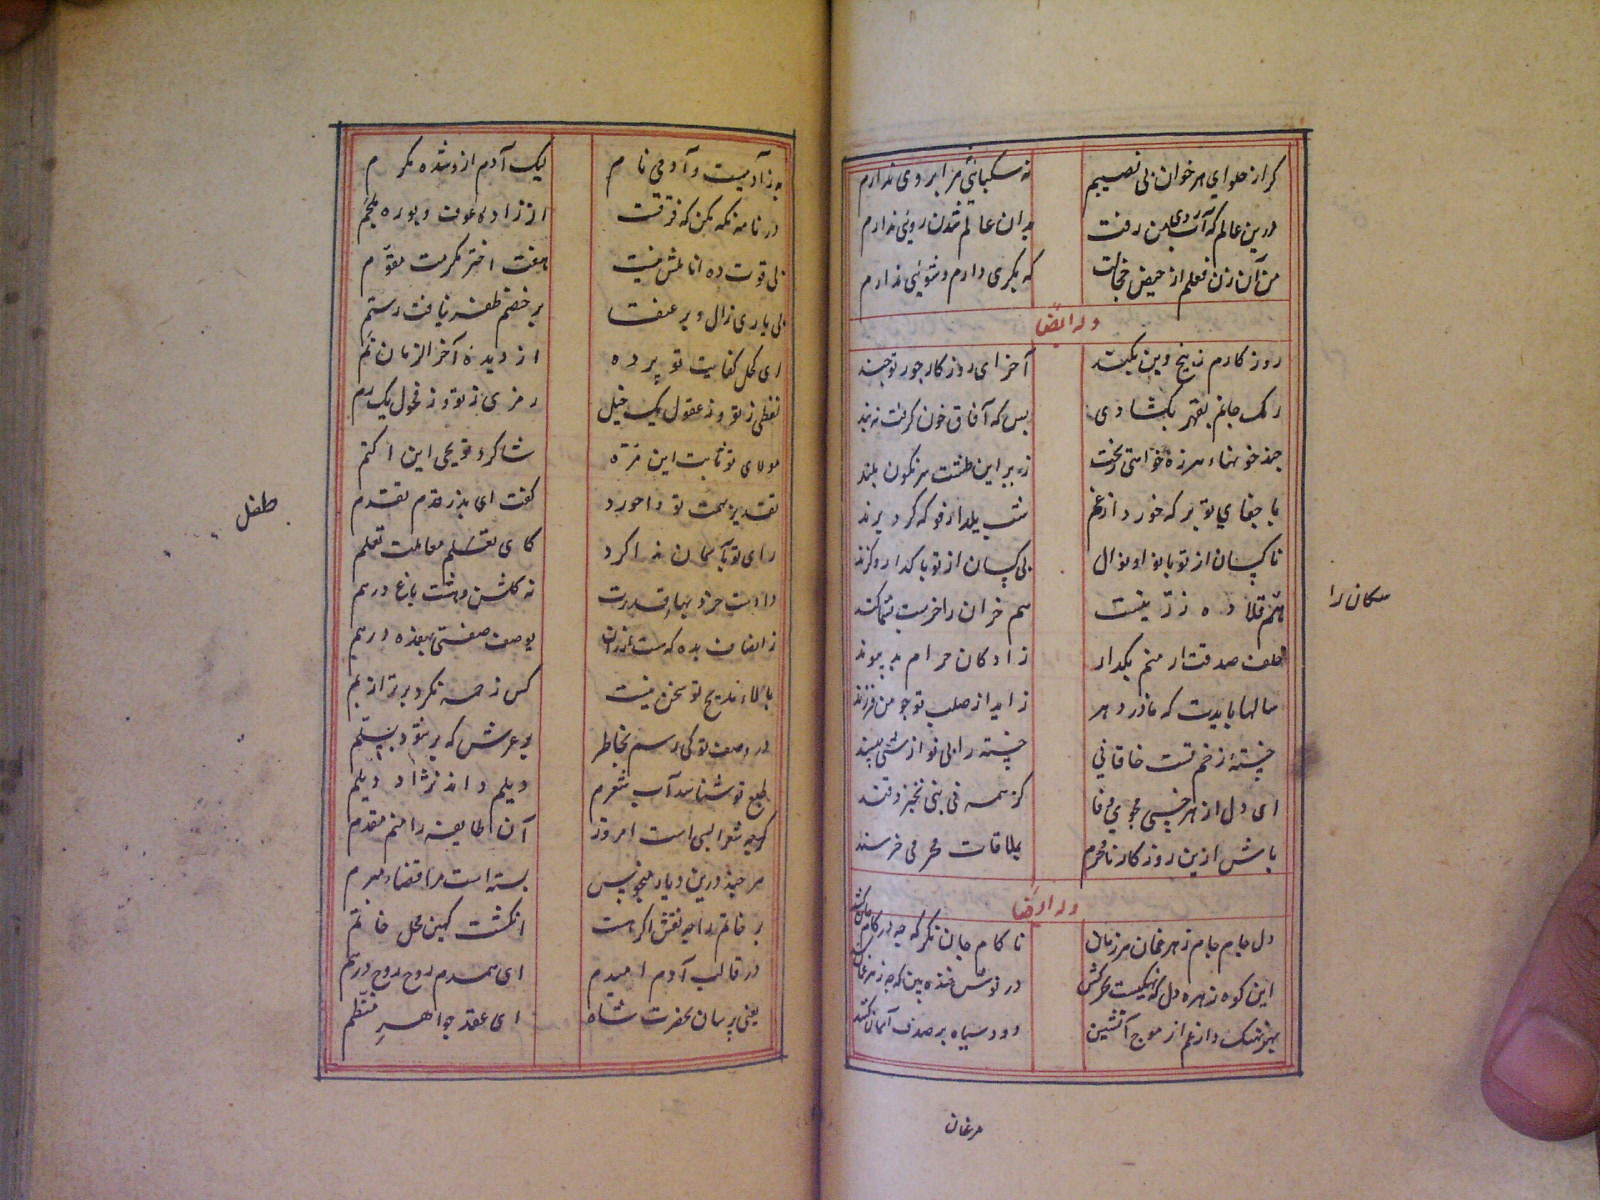 کر از حلوای هر خوان بی نصیبم
نه سکبائی مزابروی ندارم
درین عالم که آب روی من رفت
بدان عالم شدن روئی ندارم
من آن زن فعلم از حیض خجالت
که بکری دارم و شوئی ندارم
وله ایضا
روزکارم ز بیخ و بن بکند
آخر ای روزکار جور تو چند
رک جانم بقهر بکشادی
بس که آفاق خون کرفت به بند
چند خونهاء هرزه خواهی ریخت
زیر این طشت سرنکون بلند
با جفای تو بر که خورد از عمر
شب یلدا رفو که کرد پرند
ناکسان از تو با نوا و نوال
بی کسان از تو با کداز و کزند
قلاده ز زر نیست
سم خران را خرست
خلف صدقت ار منم بکدار
زادکان حرام به پیوند
سالها بایدت که مادر دهر
زاید از صلب تو چو من فرزند
خستهٔ زخم تست خاقانی
خسته را بی نوازشی مپسند
ای دل از هر خسی مجوی وفا
کز همه نی بنی نخیزد قند
باش ازین روزکار نامحرم
بملاقات محرمی خرسند
وله ایضا
دل جام جام زهر غمان هر زمان کشد
ناکام جان نکر که چه در کام جان کشد
این کوه زهره دل که نهنکیست بحرکش
در نوش خنده بین که چه زهر غمان کشد
بحر نهنک دار غم از موج آتشین
دود سیاه بر صدف آسمان کشد
سکان را
مرغان
به زآدمیست و آدمی نام
لیک آدم ازو شده مکرم
در نامه نکه مکن که فرقست
از زادهٔ عوف و پورهٔ ملجم
بی قوت ده اناملش نیست
هفت اختر مکرمت مقوم
بی یاری زال و پر عنقا
بر خصم ظفر نیافت رستم
ای کحل کفایت تو برده
از دیدهٔ آخرالزمان نم
نقطی ز تو وز عقول یک خیل
رمزی ز تو وز فحول یک رم
مولای تو ثابت ابن قره
شاکرد تو یحیی ابن اکثم
تقدیر سمت تو را خورد
کفت ای بذر هدم تقدم
رای تو بآسمان ندا کرد
کای تعلم معاملت تعلم
دادت خرد بهاء قدرت
نه کلشن و هشت باغ درهم
ز انصاف بده که هست ارزان
یوسف صفتی بهفده درهم
بالاء مدیح تو سخن نیست
کس زخمه نکرد برتر از بم
در وصف تو کی رسم بخاطر
بر عرش که بر شود بسلم
طبع تو شناسد آب شعرم
دیلم داند نژاد دیلم
کرچه شعرا بسی است امروز
آن طایفه را منم مقدم
هر چند درین دیار منحوس
بسته است مرا قضاء مبرم
بر خاتم بد اجه نقش اکرست
انکشت کهین محل خاتم
در قالب آدم امیدم
ای همدم روح روح دردم
یعنی برسان بحضرت شاه
ای عقد جواهر منظم
طفل